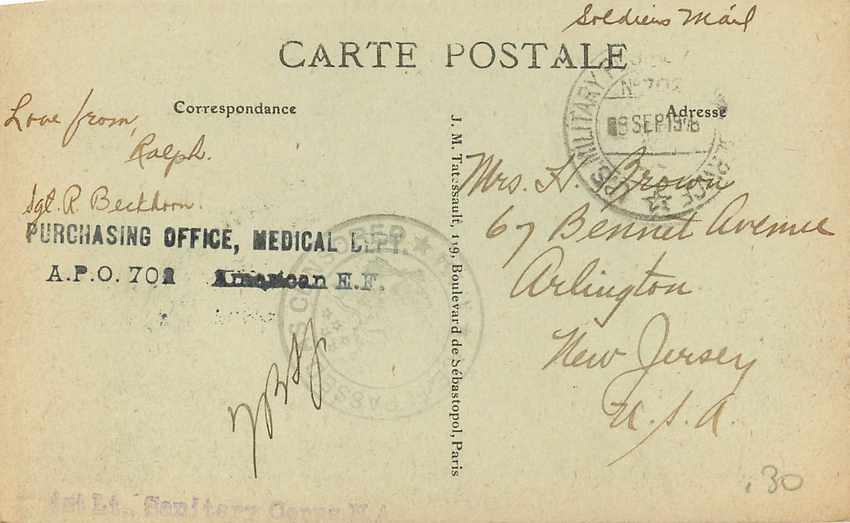 Soldiers Mail
CARTE POSTALE
Correspondance
Adresse
Love from,
Ralph.
Sgt. R. Beckhorn.
PURCHASING OFFICE, MEDICAL DEPT.
A.P.O. 702 American E.F.
1st Lt., Sanitary Corps N.A.
J. M. Tatessault, 119, Boulevard de Sébastopol, Paris
U.S. MILITARY
No 702
SEP 1918
PASSED AS CENSORED
Mrs. H. Brown
67 Bennet Avenue
Arlington
New Jersey
U.S.A.
.30